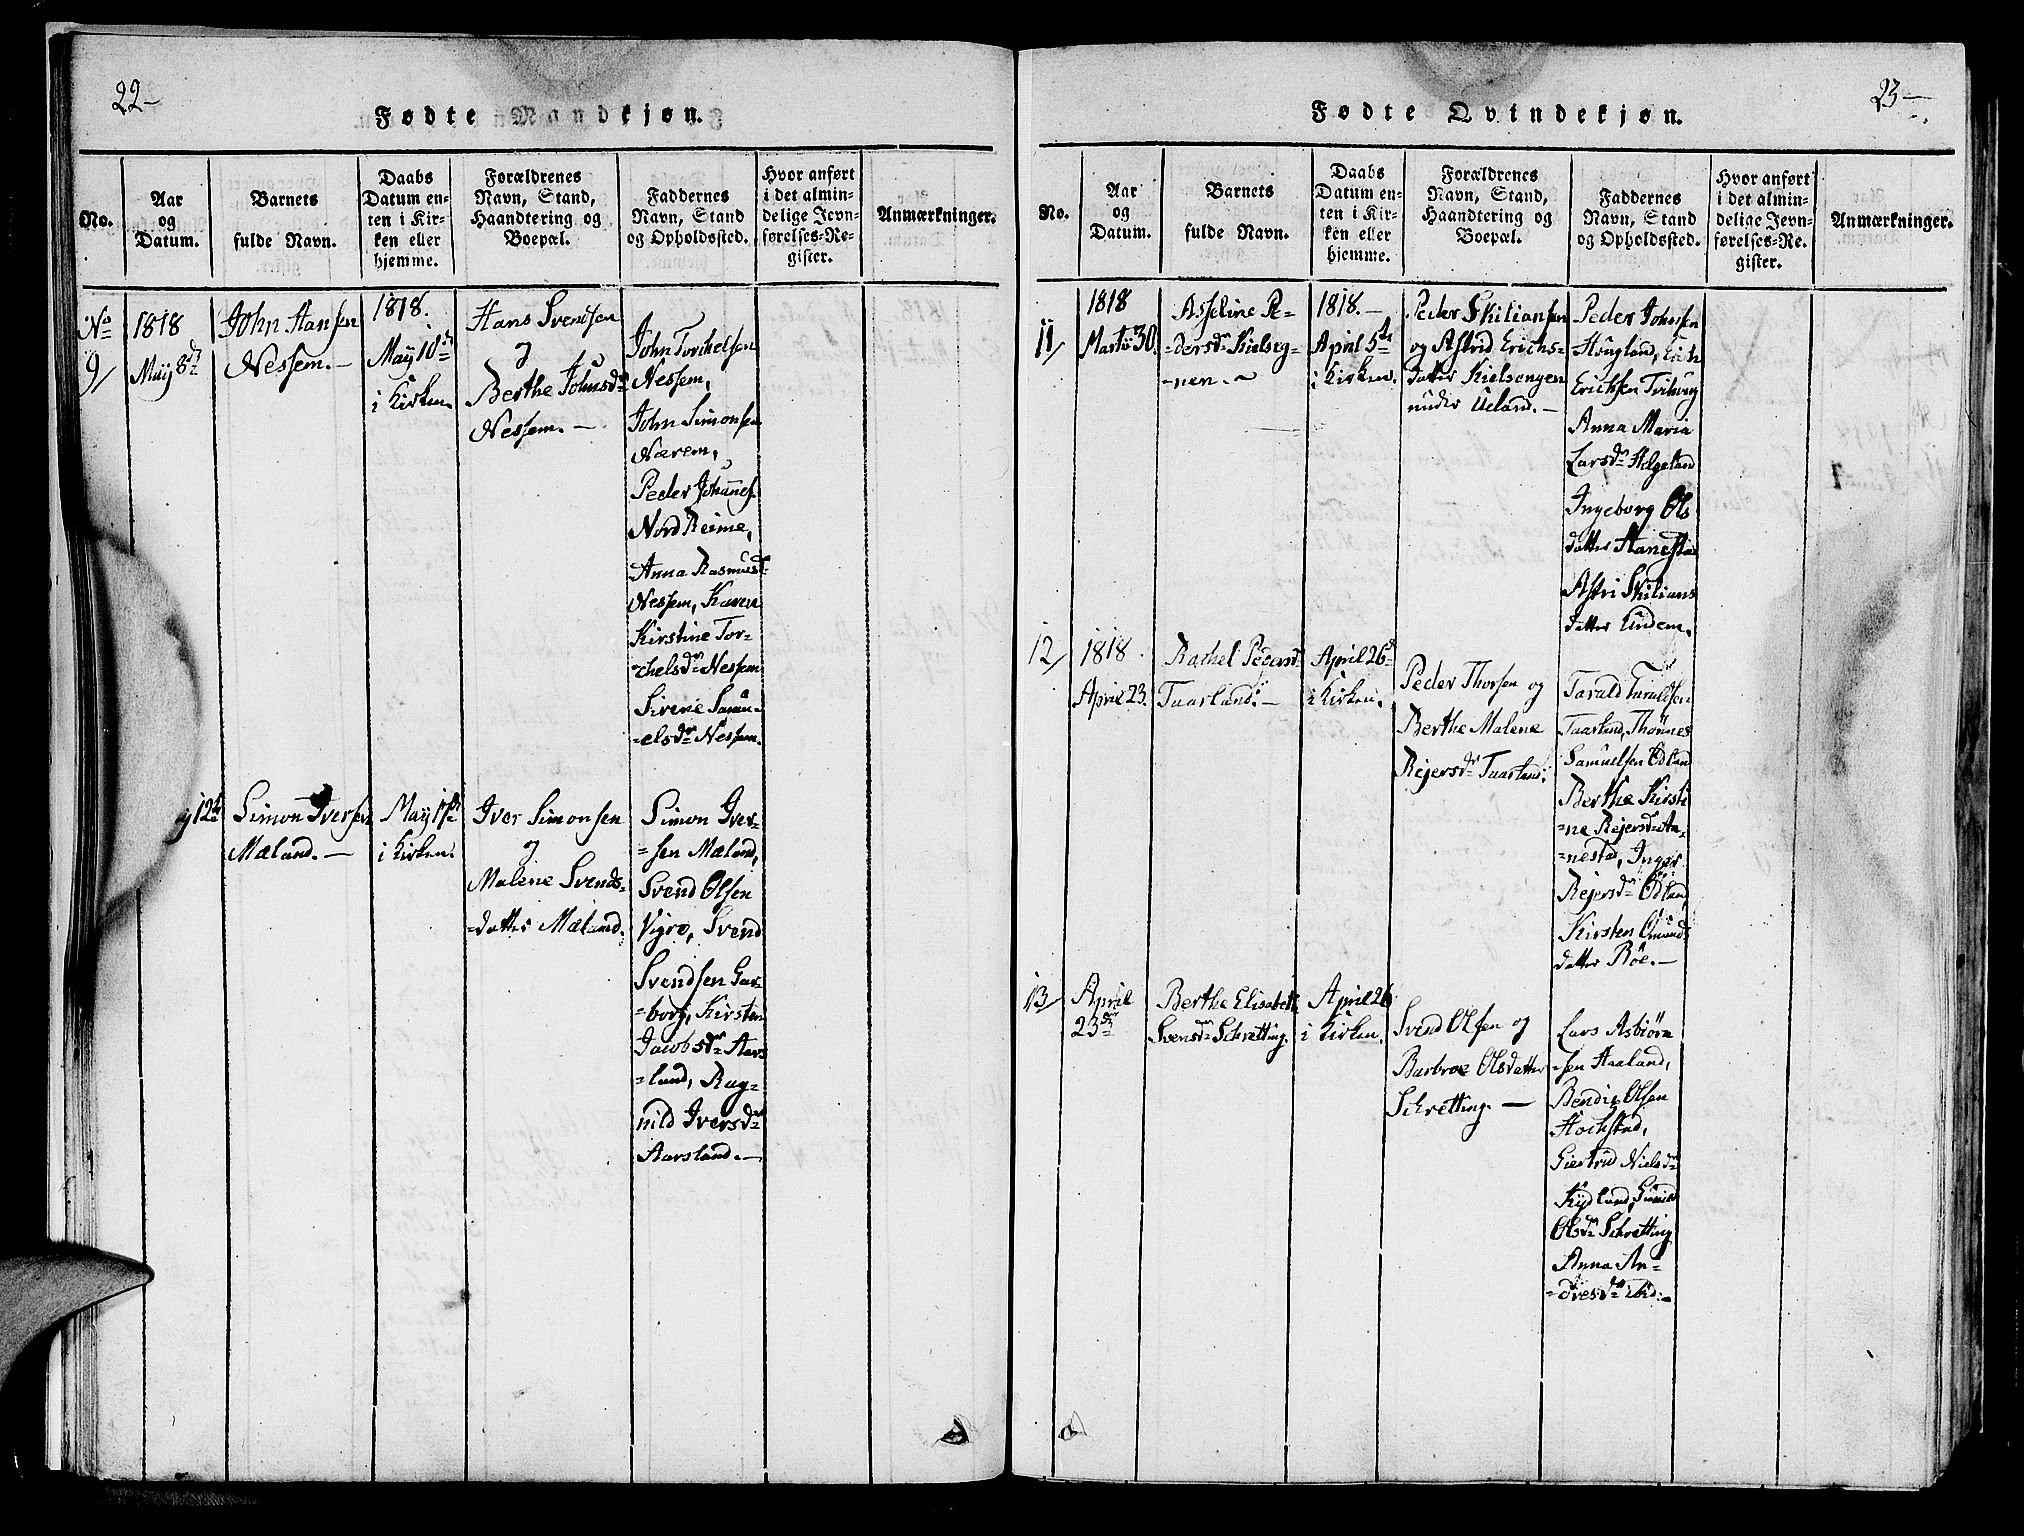 22-
Fødte Mandkjøn.
No.
Aar
og
Datum.
Barnets
fulde Navn.
Daabs
Datum en-
ten i Kir-
ken eller
hjemme.
Forældrenes
Navn, Stand,
Haandtering og
Boepæl.
Faddernes
Navn, Stand
og Opholdssted.
Hvor anført
i det almin-
delige Jevn-
førelses-Re-
gister.
Anmærkninger.
No
9/
1818
May 8de
John Hansen
Nessem.-
1818.
May 10de
i Kirken
Hans Svendsen
og
Berthe Johnsdr
Nessem.-
John Torchelsen
Nessem,
John Simonsen
Nærem,
Peder Johannes.
Nord Reime,
Anna Rasmusdr
Nessem, Karen
Kirstine Tor-
-chelsdr Nessem
Sirene Samu-
-elsdr Nessem.
y 12te
Simon Iversen
Mæland.-
May 17de
i Kirken.
Iver Simonsen
og
Malene Svends-
-datter Mæland.
Simon Iver-
-sen Mæland,
Svend Olsen
Vigre, Svend
Svendsen Gar-
-borg, Kirsten
Jacobsdr Aars-
-land, Rag-
nild Iversdr
Aarsland.-
23-
Fødte Qvindekjøn.
No.
Aar
og
Datum.
Barnets
fulde Navn.
Daabs
Datum en-
ten i Kir-
ken eller
hjemme.
Forældrenes
Navn, Stand,
Haandtering og
Boepæl.
Faddernes
Navn, Stand
og Opholdssted.
Hvor anført
i det almin-
delige Jevn-
førelses-Re-
gister.
Anmærkninger.
11/
1818
Marts 30.
Asseline Pe-
-dersdr Kielseg-
-nen.-
1818.-
April 5te
i Kirken.
Peder Skiliansen
og Astrid Erichs-
datter Kielsengen
under Ueland.-
Peder Johnsen
Hougland, Erich
Erichsen
Anna Maria
Larsdr Helgeland
Ingeborg Ols
datter Hanestad
Astri Skilians
datter Undem.
12/
1818.
April 23.
Rachel Pedersdr
Taarland.-
April 26de
i Kirken.
Peder Thorsen og
Berthe Malene
Rejersdr Taarland.
Tarald Taraldsen
Taarland, Thønnes
Samuelsen Ødland
Berthe Kirsti
-ne Rejersdr An-
-nestad, Inger
Rejersdr Ødland,
Kirsten Omunds
datter Røe.-
13/
April
23de
Berthe Elisabeth
Svensdr Schretting.
April 26
i Kirken.
Svend Olsen og
Barbroe Olsdatter
Schretting.-
Lars Asbiørn
-sen Haaland,
Bendix Olsen
Hochstad,
Giertrud Nielsdr
Kydland, Gunild
Olsdr Schretting
Anna An-
-dresdr ibid.-